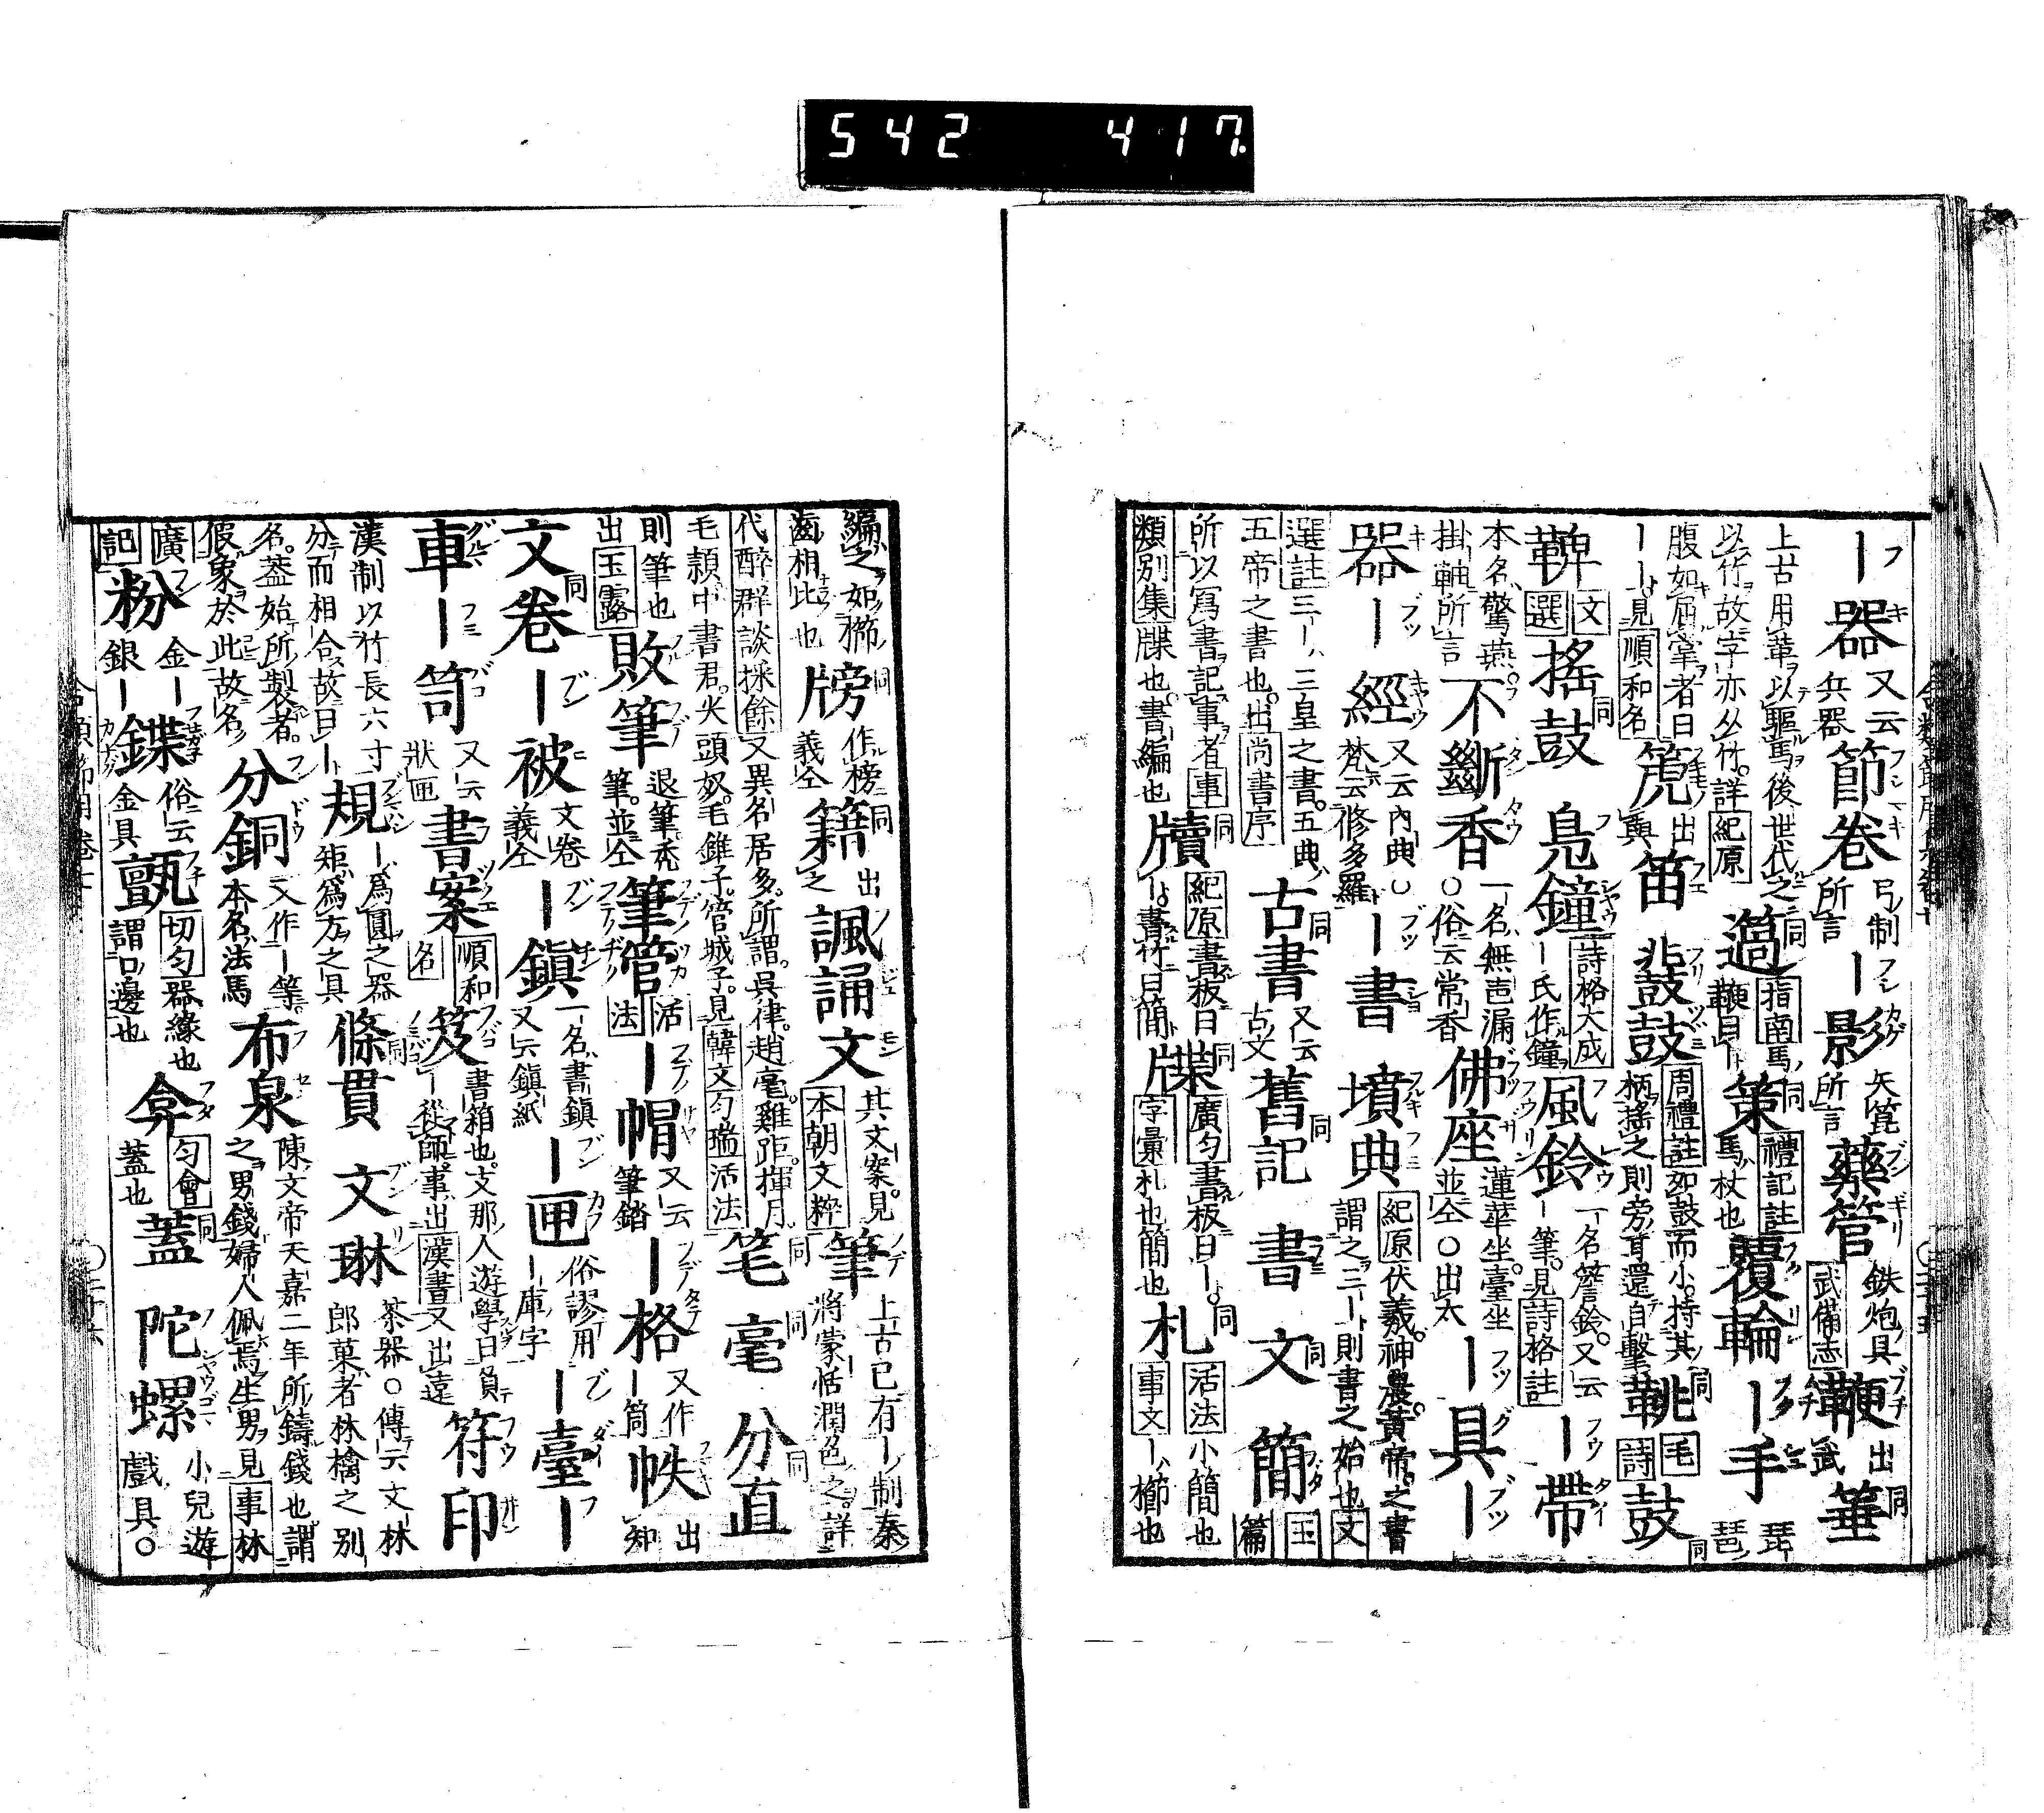 542 417
｜器 又云兵器 節巻 弓制所言 ｜影 矢箆所言 藥管 鉄炮具 武備志 鞭 出武 箠
上古用革以驅馬後世代之 以竹故字亦从竹詳紀原 檛 指南馬鞭曰｜ 策 禮記註馬杖也 覆輪 ｜手 琵琶
腹如屈掌者曰｜｜見順和名 箎 出與 笛 鼗鼓 周禮註如鼓而小持其柄搖之則旁耳還自擊 鞉 毛詩 鼓
鞞 文選 搖鼓 鳧鐘 詩格大成｜氏作鐘 風鈴 一名簷鈴又云｜箏見詩格註 ｜帶
本名驚燕掛軸所言 不斷香 一名無声漏○俗云常香 佛座 蓮華坐臺坐並仝○出太 ｜具｜
器 ｜經 又云內典○梵云修多羅 ｜書 墳典 紀原伏羲神農黃帝之書謂之三｜則書之始也文
選註三｜三皇之書五典五帝之書也出尚書序 古書 又云古文 舊記 書 文 簡 玉篇
所以寫書記事者事類別集牒也書編也 牘 紀原書板曰｜書竹曰簡 牒 廣匀書板曰｜字彙札也簡也 札 活法小簡也事文｜櫛也
編之如櫛齒相比也 牓 作榜義仝 籍 出之 諷誦文 其文案見本朝文粹 筆 上古已有｜制秦將蒙恬潤色之詳
代醉群談採餘又異名居多所謂呉律趙毫雞距揮月毛穎中書君尖頭奴毛錐子管城子見韓文匀瑞活法 笔 毫 分直
則筆也出玉露 敗筆 退筆禿筆並仝 筆管 活法 ｜帽 又云筆鞜 ｜格 又作｜筒 帙 出知
文卷 ｜被 文卷義仝 ｜鎮 一名書鎮又云鎮紙 ｜匣 俗謬用｜庫字 ｜臺｜
車 ｜笥 又云狀匣 書案 順和名 笈 書箱也支那人遊學曰負｜從師事出漢書又出遠 符印
漢制以竹長六寸分而相合故曰｜ 規 ｜爲圓之器矩爲方之具 條貫 文琳 茶器○傳云文林郎菓者林檎之別
名蓋始所製者假象於此故名 分銅 又作｜等本名法馬 布泉 陳文帝天嘉二年所鑄錢也謂之男錢婦人佩焉生男見事林
廣記 粉 金｜銀｜ 鐷 俗云金具 甂 切匀器緣也謂口邊也 弇 匀會蓋也 蓋 陀螺 小兒遊戲具○